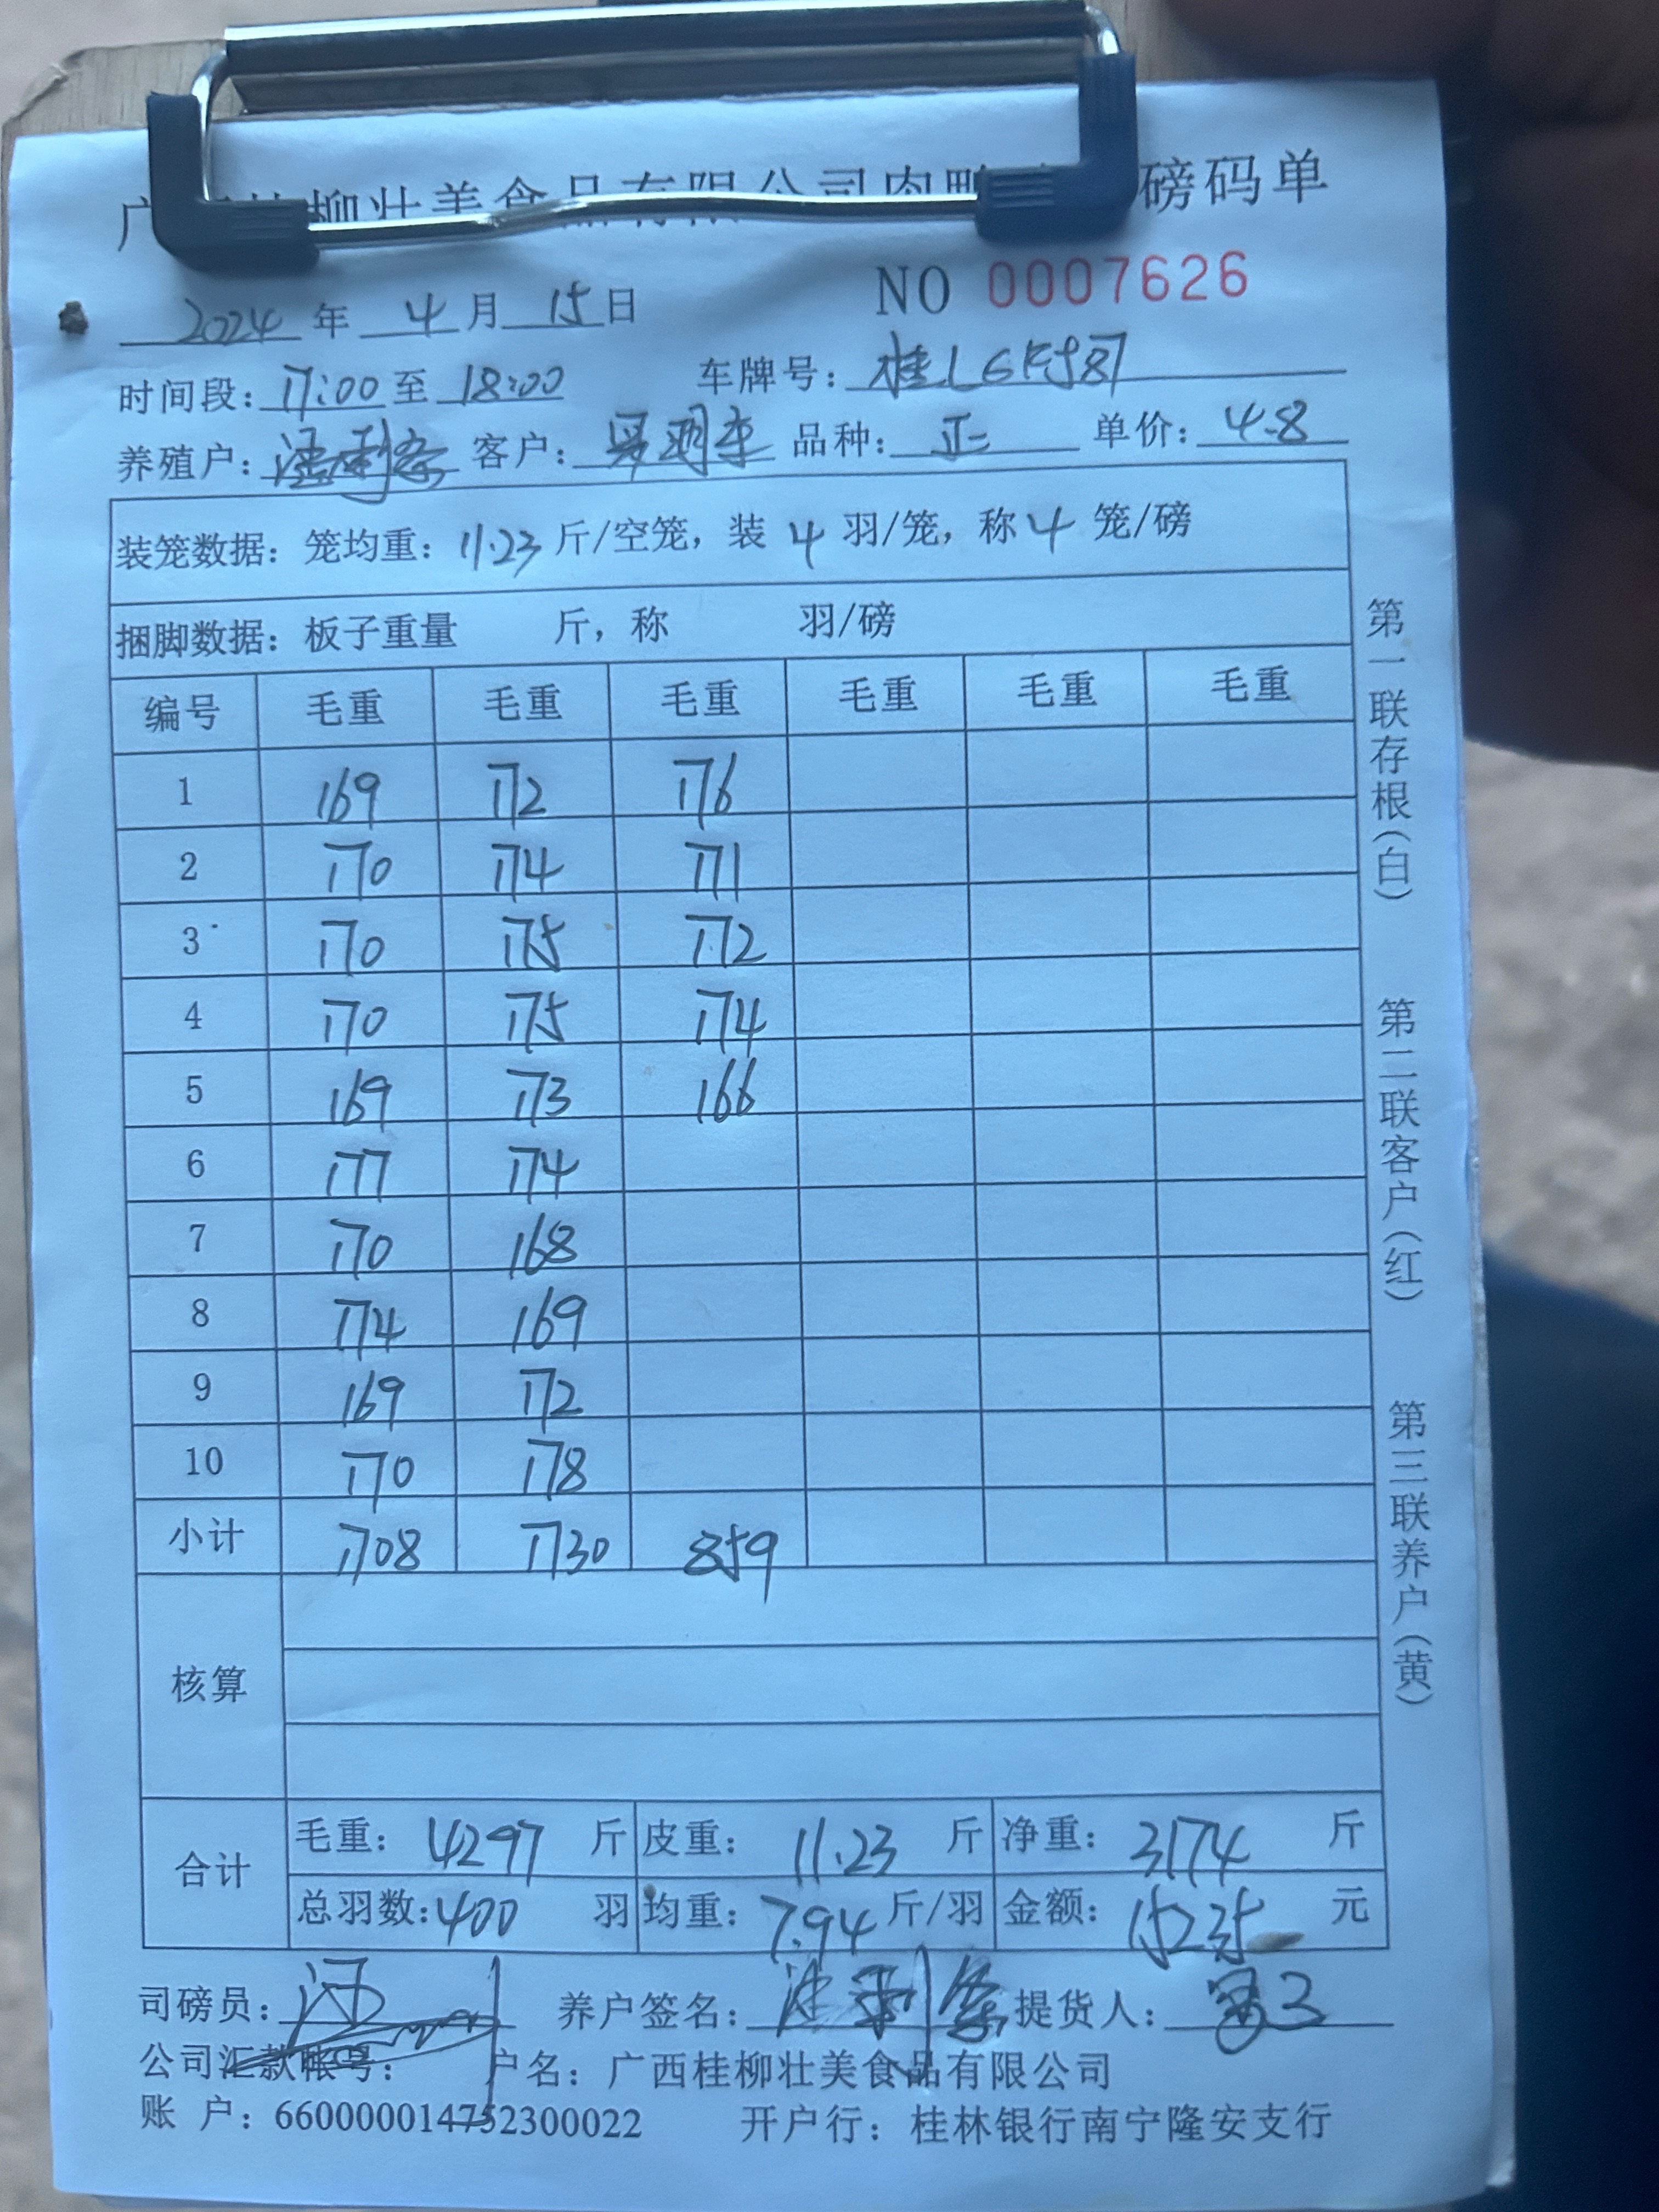 柳壮美食品有限公司肉鸭 磅码单
NO 0007626
2024 年 4 月 15 日
时间段: 17:00 至 18:00 车牌号: 桂L
养殖户: 客户: 品种: 正 单价: 4.8
装笼数据: 笼均重: 11.23 斤/空笼, 装 4 羽/笼, 称 4 笼/磅
捆脚数据: 板子重量 斤, 称 羽/磅
编号 毛重 毛重 毛重 毛重 毛重 毛重
1 169 172 176
2 170 174 171
3 170 175 172
4 170 175 174
5 169 173 166
6 177 174
7 170 168
8 174 169
9 169 172
10 170 178
小计 1708 1730 859
核算
合计
毛重: 4297 斤 皮重: 11.23 斤 净重: 3174 斤
总羽数: 400 羽 均重: 7.94 斤/羽 金额: 15235 元
司磅员: 养户签名: 提货人:
公司汇款帐号: 户名: 广西桂柳壮美食品有限公司
账 户: 660000014752300022 开户行: 桂林银行南宁隆安支行
第一联存根(白)
第二联客户(红)
第三联养户(黄)